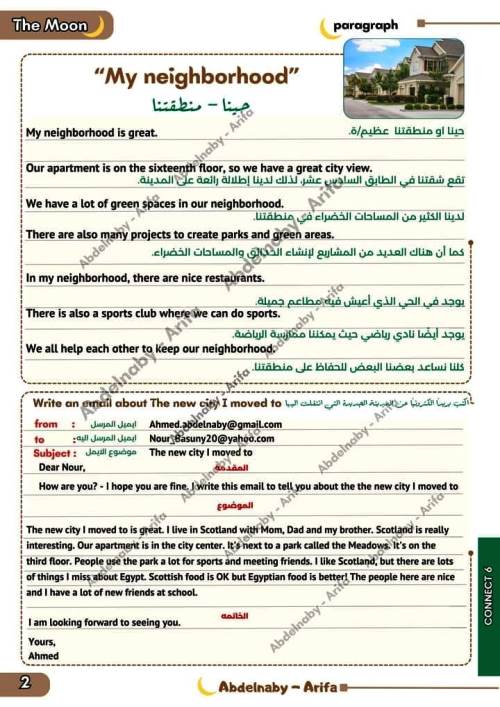 The Moon
paragraph
“My neighborhood”
حينا - منطقتنا
My neighborhood is great.
حينا او منطقتنا عظيم/ة.
Our apartment is on the sixteenth floor, so we have a great city view.
تقع شقتنا في الطابق السادس عشر، لذلك لدينا إطلالة رائعة على المدينة.
We have a lot of green spaces in our neighborhood.
لدينا الكثير من المساحات الخضراء في منطقتنا.
There are also many projects to create parks and green areas.
كما أن هناك العديد من المشاريع لإنشاء الحدائق والمساحات الخضراء.
In my neighborhood, there are nice restaurants.
يوجد في الحي الذي أعيش فيه مطاعم جميلة.
There is also a sports club where we can do sports.
يوجد أيضًا نادي رياضي حيث يمكننا ممارسة الرياضة.
We all help each other to keep our neighborhood.
كلنا نساعد بعضنا البعض للحفاظ على منطقتنا.
Write an email about The new city I moved to اكتب بريدا الكترونيا عن المدينة الجديدة التي انتقلت اليها
from : ايميل المرسل Ahmed.abdelnaby@gmail.com
to : ايميل المرسل اليه Nour_Basuny20@yahoo.com
Subject : موضوع الايمل The new city I moved to
Dear Nour,
المقدمة
How are you? - I hope you are fine. I write this email to tell you about the the new city I moved to
الموضوع
The new city I moved to is great. I live in Scotland with Mom, Dad and my brother. Scotland is really
interesting. Our apartment is in the city center. It's next to a park called the Meadows. It's on the
third floor. People use the park a lot for sports and meeting friends. I like Scotland, but there are lots
of things I miss about Egypt. Scottish food is OK but Egyptian food is better! The people here are nice
and I have a lot of new friends at school.
الخاتمه
I am looking forward to seeing you.
Yours,
Ahmed
CONNECT 6
2
Abdelnaby - Arifa